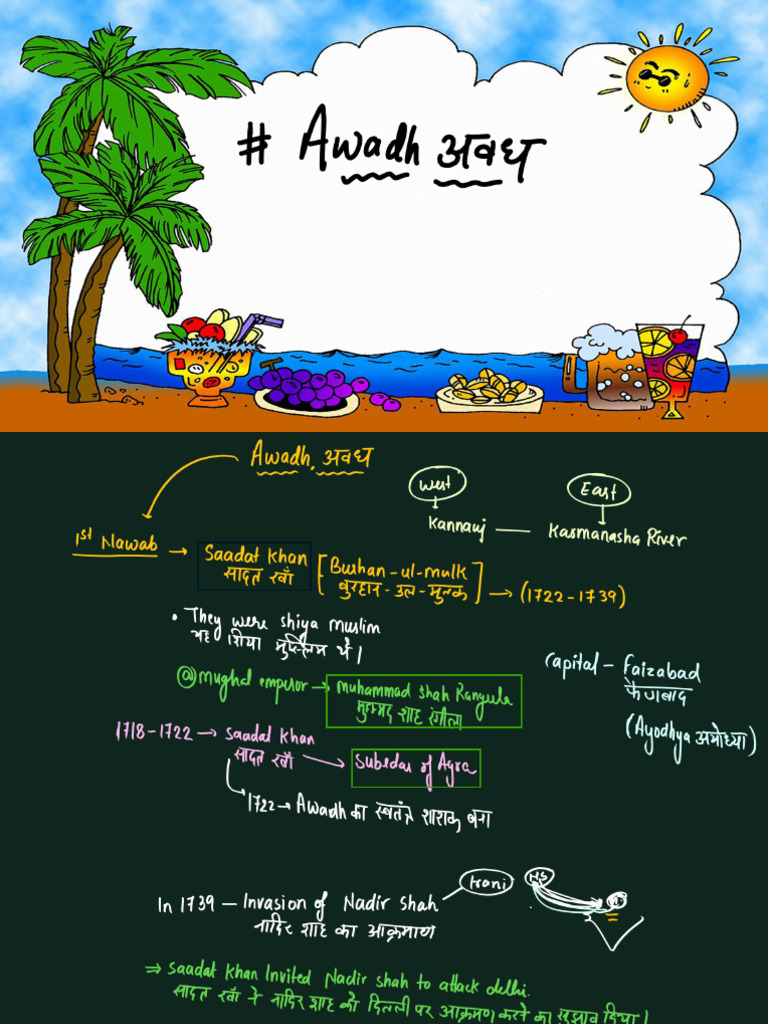 # Awadh अवध
Awadh, अवध
West
East
Kannauj — Karmanasha River
1st Nawab → Saadat Khan [Burhan-ul-mulk] → (1722-1739)
सादत खाँ बुरहान-उल-मुल्क
• They were shiya muslim
यह शिया मुस्लिम थे।
Capital - Faizabad
फैजाबाद
(Ayodhya अयोध्या)
@ mughal emperor → Muhammad Shah Rangeela
मुहम्मद शाह रंगीला
1718-1722 → Saadat Khan → Subedar of Agra
सादत खाँ
1722 → Awadh का स्वतंत्र शासक बना
In 1739 — Invasion of Nadir Shah
Irani
नादिर शाह का आक्रमण
⇒ Saadat Khan Invited Nadir Shah to attack delhi.
सादत खाँ ने नादिर शाह को दिल्ली पर आक्रमण करने का सुझाव दिया।